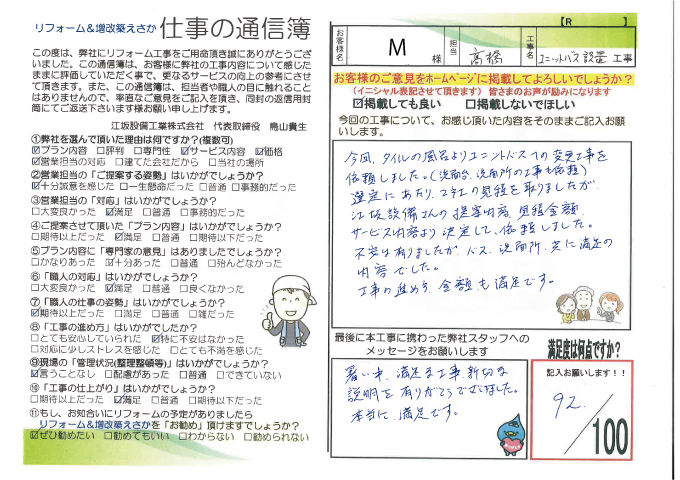 リフォーム&増改築えさか 仕事の通信簿
この度は、弊社にリフォーム工事をご用命頂き誠にありがとうござ
いました。この通信簿は、お客様に弊社の工事内容について感じた
ままに評価していただく事で、更なるサービスの向上の参考にさせ
て頂きます。また、この通信簿は、担当者や職人の目に触れること
はありませんので、率直なご意見をご記入を頂き、同封の返信用封
筒にてご返送下さいます様お願い申し上げます。
江坂設備工業株式会社 代表取締役 鳥山貴生
①弊社を選んで頂いた理由は何ですか?(複数可)
☑プラン内容 □評判 □専門性 ☑サービス内容 ☑価格
☑営業担当の対応 □建てた会社だから □当社の場所
②営業担当の「ご提案する姿勢」はいかがでしょうか?
☑十分誠意を感じた □一生懸命だった □普通 □事務的だった
③営業担当の「対応」はいかがでしょうか?
□大変良かった ☑満足 □普通 □事務的だった
④ご提案させて頂いた「プラン内容」はいかがでしょうか?
□期待以上だった ☑満足 □普通 □期待以下だった
⑤プラン内容に「専門家の意見」はありましたでしょうか?
□かなりあった ☑十分あった □普通 □殆んどなかった
⑥「職人の対応」はいかがでしょうか?
□大変良かった ☑満足 □普通 □良くなかった
⑦「職人の仕事の姿勢」はいかがでしょうか?
☑期待以上だった □満足 □普通 □雑だった
⑧「工事の進め方」はいかがでしたか?
□とても安心していられた ☑特に不安はなかった
□対応に少しストレスを感じた □とても不満を感じた
⑨現場の「管理状況(整理整頓等)」はいかがでしょうか?
☑言うことなし □配慮があった □普通 □できていない
⑩「工事の仕上がり」はいかがでしょうか?
□期待以上だった ☑満足 □普通 □期待以下だった
⑪もし、お知合いにリフォームの予定がありましたら
リフォーム&増改築えさかを「お勧め」頂けますでしょうか?
☑ぜひ勧めたい □勧めてもいい □わからない □勧められない
【R 】
お客様名 M 様 担当 高橋 工事名 ユニットバス設置 工事
お客様のご意見をホームページに掲載してよろしいでしょうか?
(イニシャル表記させて頂きます) 皆さまのお声が励みになります
☑掲載しても良い □掲載しないでほしい
今回の工事について、お感じ頂いた内容をそのままご記入お願
いします。
今回、タイルの風呂よりユニットバスへの変更工事を
依頼しました。(洗面台、洗面所の工事も依頼)
選定にあたり、2社の見積を取りましたが、
江坂設備さんの提案内容、見積金額、
サービス内容より決定して、依頼しました。
不安は有りましたが、バス、洗面所、共に満足の
内容でした。
工事の進め方、金額も満足です。
最後に本工事に携わった弊社スタッフへの
メッセージをお願いします
暑い中、満足な工事、親切な
説明を ありがとうございました。
本当に、満足です。
満足度は何点ですか?
記入お願いします!!
92
/100